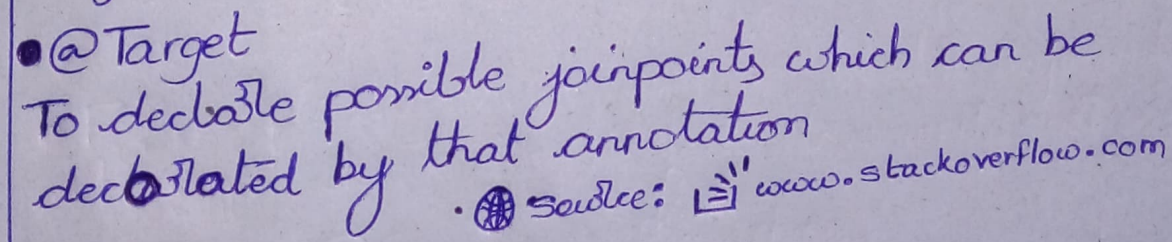 • @Target
To declare possible joinpoints which can be
decorated by that annotation
. Source: www.stackoverflow.com